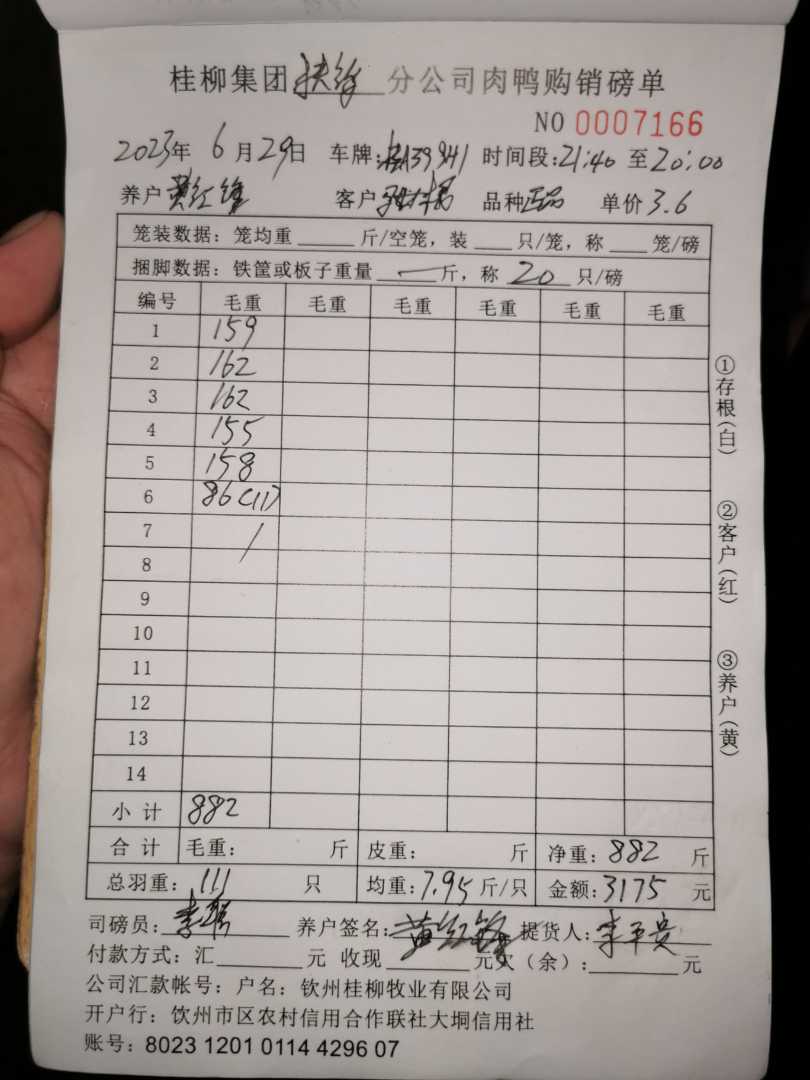 桂柳集团扶绥分公司肉鸭购销磅单
NO 0007166
2023年 6月29日 车牌: 39941 时间段:21:40 至20:00
养户黄红锋 客户 品种正品 单价3.6
笼装数据：笼均重 斤/空笼，装 只/笼，称 笼/磅
捆脚数据：铁筐或板子重量 — 斤，称 20 只/磅
编号 毛重 毛重 毛重 毛重 毛重 毛重
1 159
2 162
3 162
4 155
5 158
6 86(11)
7 /
8
9
10
11
12
13
14
小计 882
合计 毛重： 斤 皮重： 斤 净重：882 斤
总羽重：111 只 均重：7.95 斤/只 金额：3175 元
司磅员： 养户签名：黄红锋 提货人：李平贵
付款方式：汇 元 收现 元欠（余）： 元
公司汇款帐号：户名：钦州桂柳牧业有限公司
开户行：钦州市区农村信用合作联社大垌信用社
账号：8023 1201 0114 4296 07
①存根(白)
②客户(红)
③养户(黄)